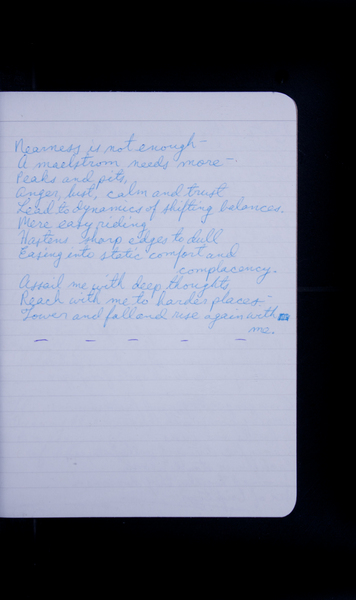 Nearness is not enough –
A maelstrom needs more –.
Peaks and pits,
Anger, lust, calm and trust
Lead to dynamics of shifting balances.
Mere easy riding
Hastens sharp edges to dull
Easing into static comfort and
complacency.
Assail me with deep thoughts,
Reach with me to harder places –
Tower and fall and rise again with
me.